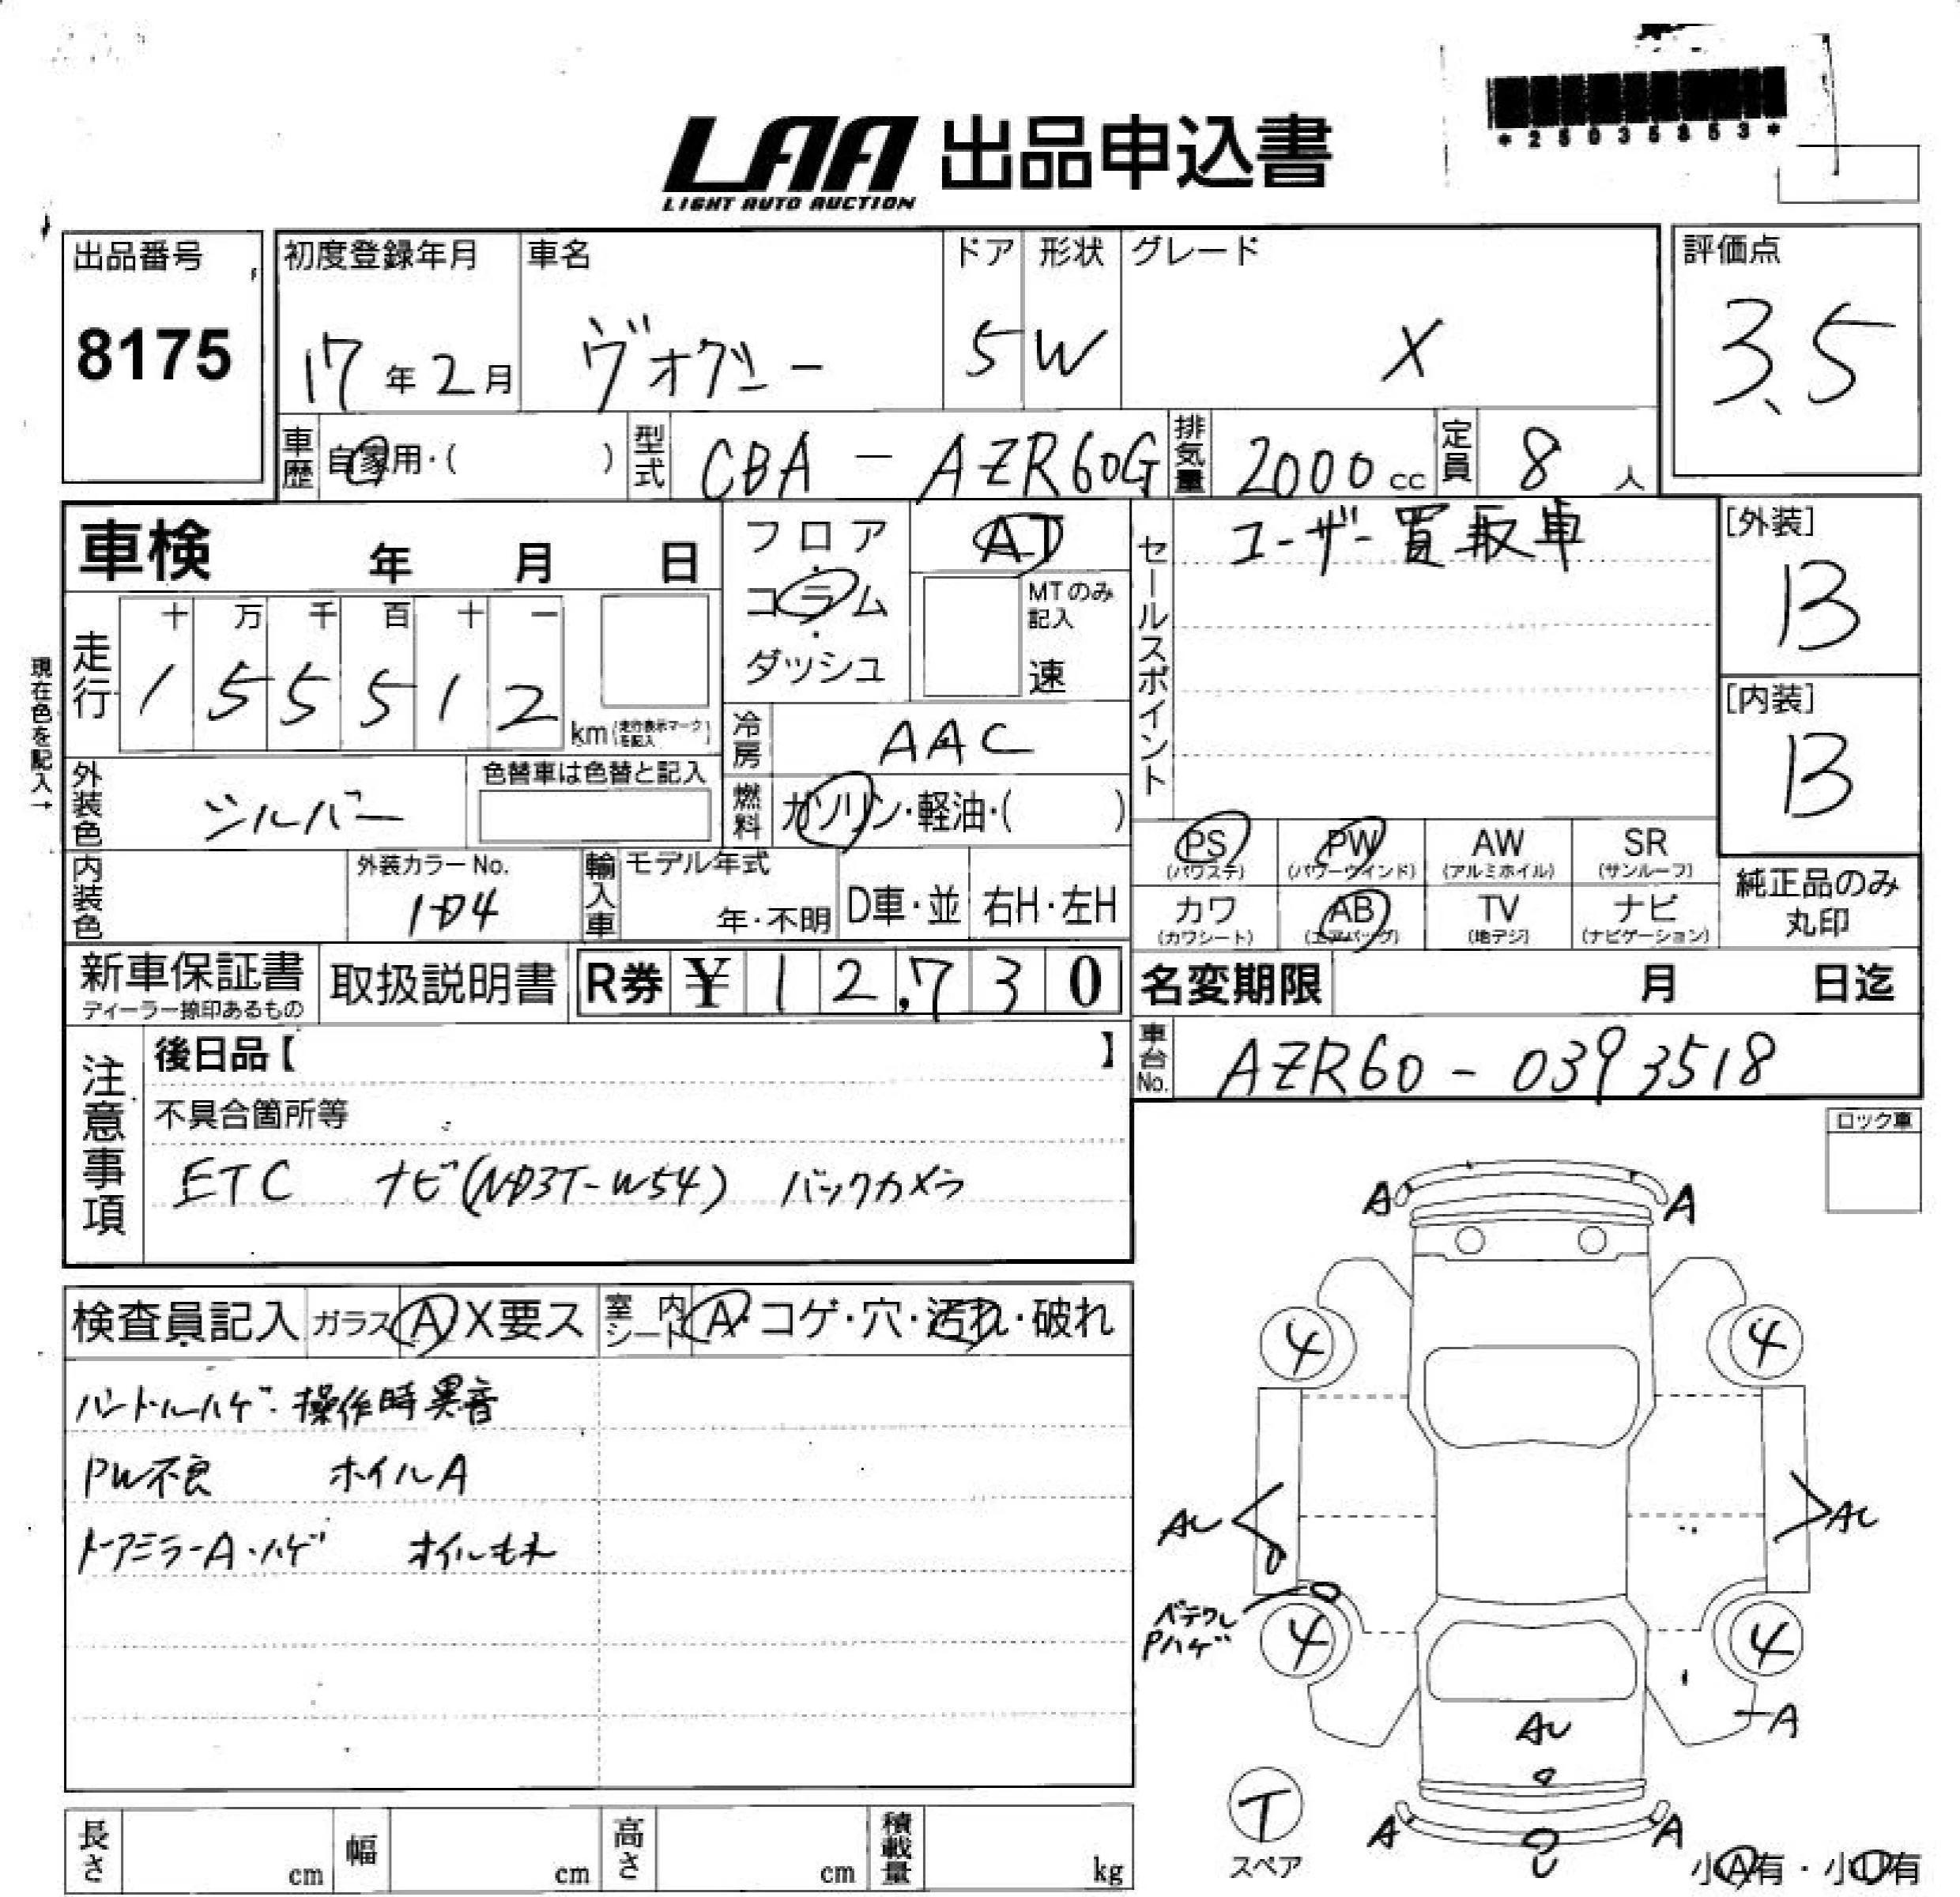 *25035853*
LAA 出品申込書
LIGHT AUTO AUCTION
出品番号
8175
初度登録年月
17年2月
車名
ヴォクシー
ドア
5
形状
W
グレード
X
評価点
3.5
車歴 自家用・( )
型式 CBA - AZR60G
排気量 2000cc
定員 8人
車検 年 月 日
フロア・コラム・ダッシュ
AT
MTのみ記入
速
セールスポイント
ユーザー買取車
[外装]
B
[内装]
B
現在色を記入→
走行
十 万 千 百 十 一
1 5 5 5 1 2
km (走行表示マークを記入)
冷房 AAC
外装色 シルバー
色替車は色替と記入
燃料 ガソリン・軽油・( )
PS (パワステ)
PW (パワーウインド)
AW (アルミホイル)
SR (サンルーフ)
カワ (カワシート)
AB (エアバッグ)
TV (地デジ)
ナビ (ナビゲーション)
純正品のみ
丸印
内装色
外装カラーNo.
1D4
輸入車
モデル年式
年・不明
D車・並
右H・左H
新車保証書
ディーラー捺印あるもの
取扱説明書
R券 ¥ 12,730
名変期限 月 日迄
車台No. AZR60 - 0393518
注意事項
後日品【 】
不具合箇所等
ETC ナビ(ND3T-W54) バックカメラ
ロック車
検査員記入 ガラス A X要ス 室内シート A・コゲ・穴・汚れ・破れ
ハンドルハゲ・操作時異音
PW不良 ホイルA
ドアミラーA・ハゲ オイルもれ
A A
4 4
AU AU
Pハゲ
4 4
AU
A
T
スペア
A A
小A有・小U有
長さ cm 幅 cm 高さ cm 積載量 kg